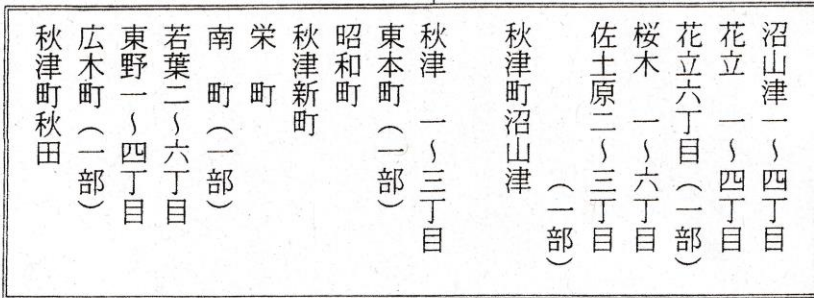 沼山津一〜四丁目
花立　一〜四丁目
花立六丁目（一部）
桜木　一〜六丁目
佐土原二〜三丁目
（一部）
秋津町沼山津
秋津　一〜三丁目
東本町（一部）
昭和町
秋津新町
栄　町
南　町（一部）
若葉二〜六丁目
東野一〜四丁目
広木町（一部）
秋津町秋田